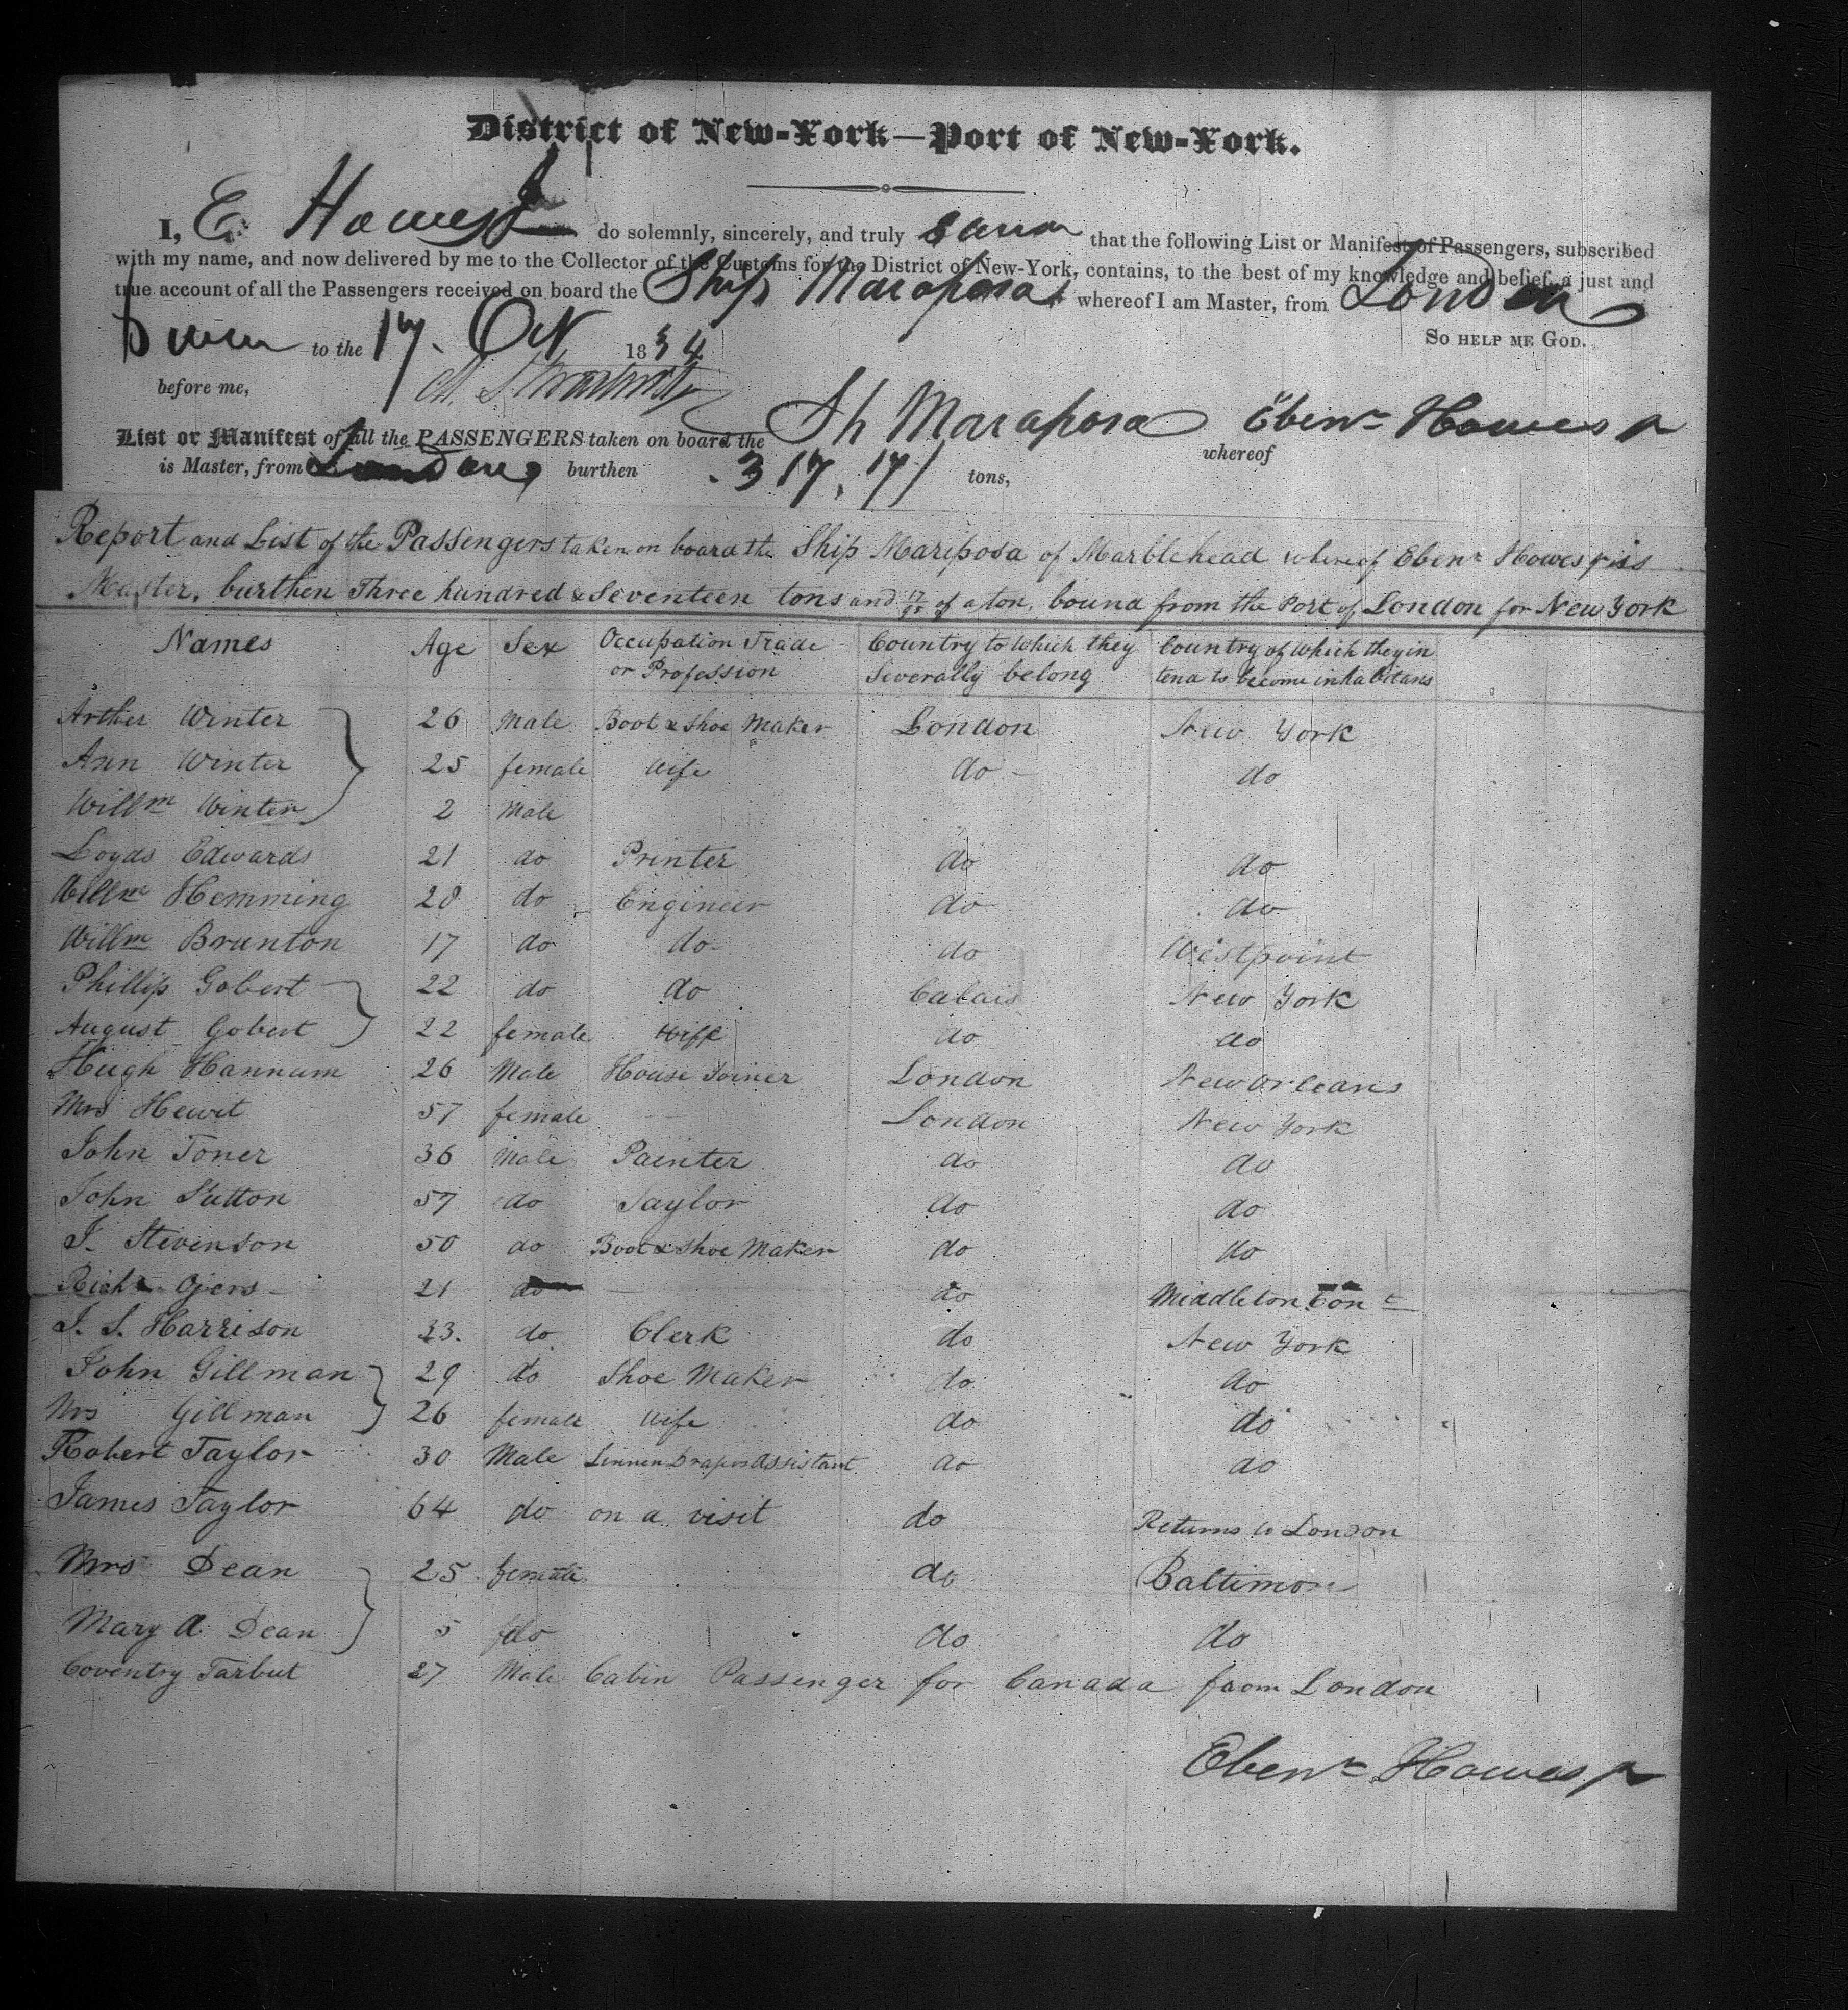 District of New-York—Port of New-York.
I, E Howes Jr do solemnly, sincerely, and truly swear that the following List or Manifest of Passengers, subscribed
with my name, and now delivered by me to the Collector of the Customs for the District of New-York, contains, to the best of my knowledge and belief, a just and
true account of all the Passengers received on board the Ship Maraposa whereof I am Master, from London
Sworn to the 17. Oct 1834 So help me God.
before me,
List or Manifest of all the PASSENGERS taken on board the Sh Maraposa whereof Ebenr Howes Jr
is Master, from London burthen 317.17/ tons,
Report and List of the Passengers taken on board the Ship Mariposa of Marblehead whereof Ebenr Howes jr is
Master, burthen Three hundred & Seventeen tons and 17/95 of a ton, bound from the Port of London for New York
Names Age Sex Occupation Trade or Profession Country to which they Severally belong Country of which they in tend to become inhabitans
Arther Winter 26 Male Boot & Shoe Maker London New York
Ann Winter 25 female Wife do do
Willm Winter 2 Male
Loyds Edwards 21 do Printer do do
Willm Hemming 28 do Engineer do do
Willm Brunton 17 do do do Westpoint
Phillip Gobert 22 do do Calais New York
August Gobert 22 female Wife do do
Hugh Hannum 26 Male House Joiner London New Orleans
Mrs Hewit 57 female London New York
John Toner 36 Male Painter do do
John Sutton 57 do Taylor do do
J. Stevenson 50 do Boot & Shoe Maker do do
Richd Ojers 21 do do Middleton Cont
J. S. Harrison 23. do Clerk do New York
John Gillman 29 do Shoe Maker do do
Mrs Gillman 26 female Wife do do
Robert Taylor 30 Male Linnen Draper Assistant do do
James Taylor 64 do on a visit do Returns to London
Mrs Dean 25 female do Baltimore
Mary A Dean 5 do do do
Coventry Tarbut 27 Male Cabin Passenger for Canada from London
Ebenr Howes Jr